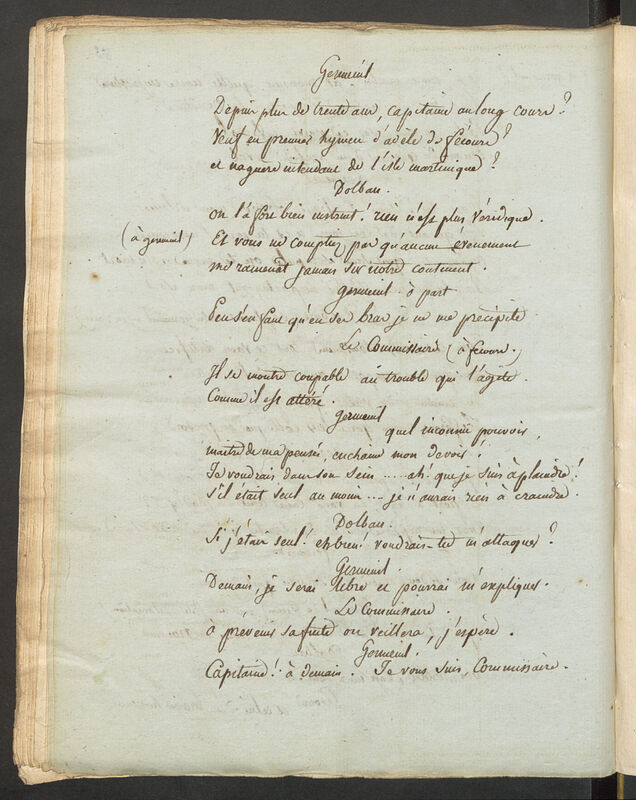 Germeuil
Depuis plus de trente ans, capitaine au long cours ?
Veuf en premier hymen d'adèle de fécour ?
et naguere intendant de l'isle martinique ?
Dolban.
on l'a fort bien instruit ! rien n'est plus véridique.
(à germeuil) Et vous ne comptiez pas qu'aucun événement
me ramenat jamais sur notre continent.
germeuil à part
Peu s'en faut qu'en ses bras je ne me précipite
Le Commissaire (à fécour.)
Il se montre coupable au trouble qui l'agite.
Comme il est attéré.
germeuil
quel inconnu pouvoir,
maitrise ma pensée, enchaine mon devoir !
Je voudrais dans son sein .... ah ! que je suis à plaindre !
S'il était seul au moins ... je n'aurais rien à craindre.
Dolban.
Si j'étais seul ! eh bien ! voudrais-tu m'attaquer ?
Germeuil.
Demain, je serai libre et pourrai m'expliquer.
Le Commissaire.
à prévenir sa fuite on veillera, j'espère.
Germeuil.
Capitaine ! à demain. Je vous suis, Commissaire.